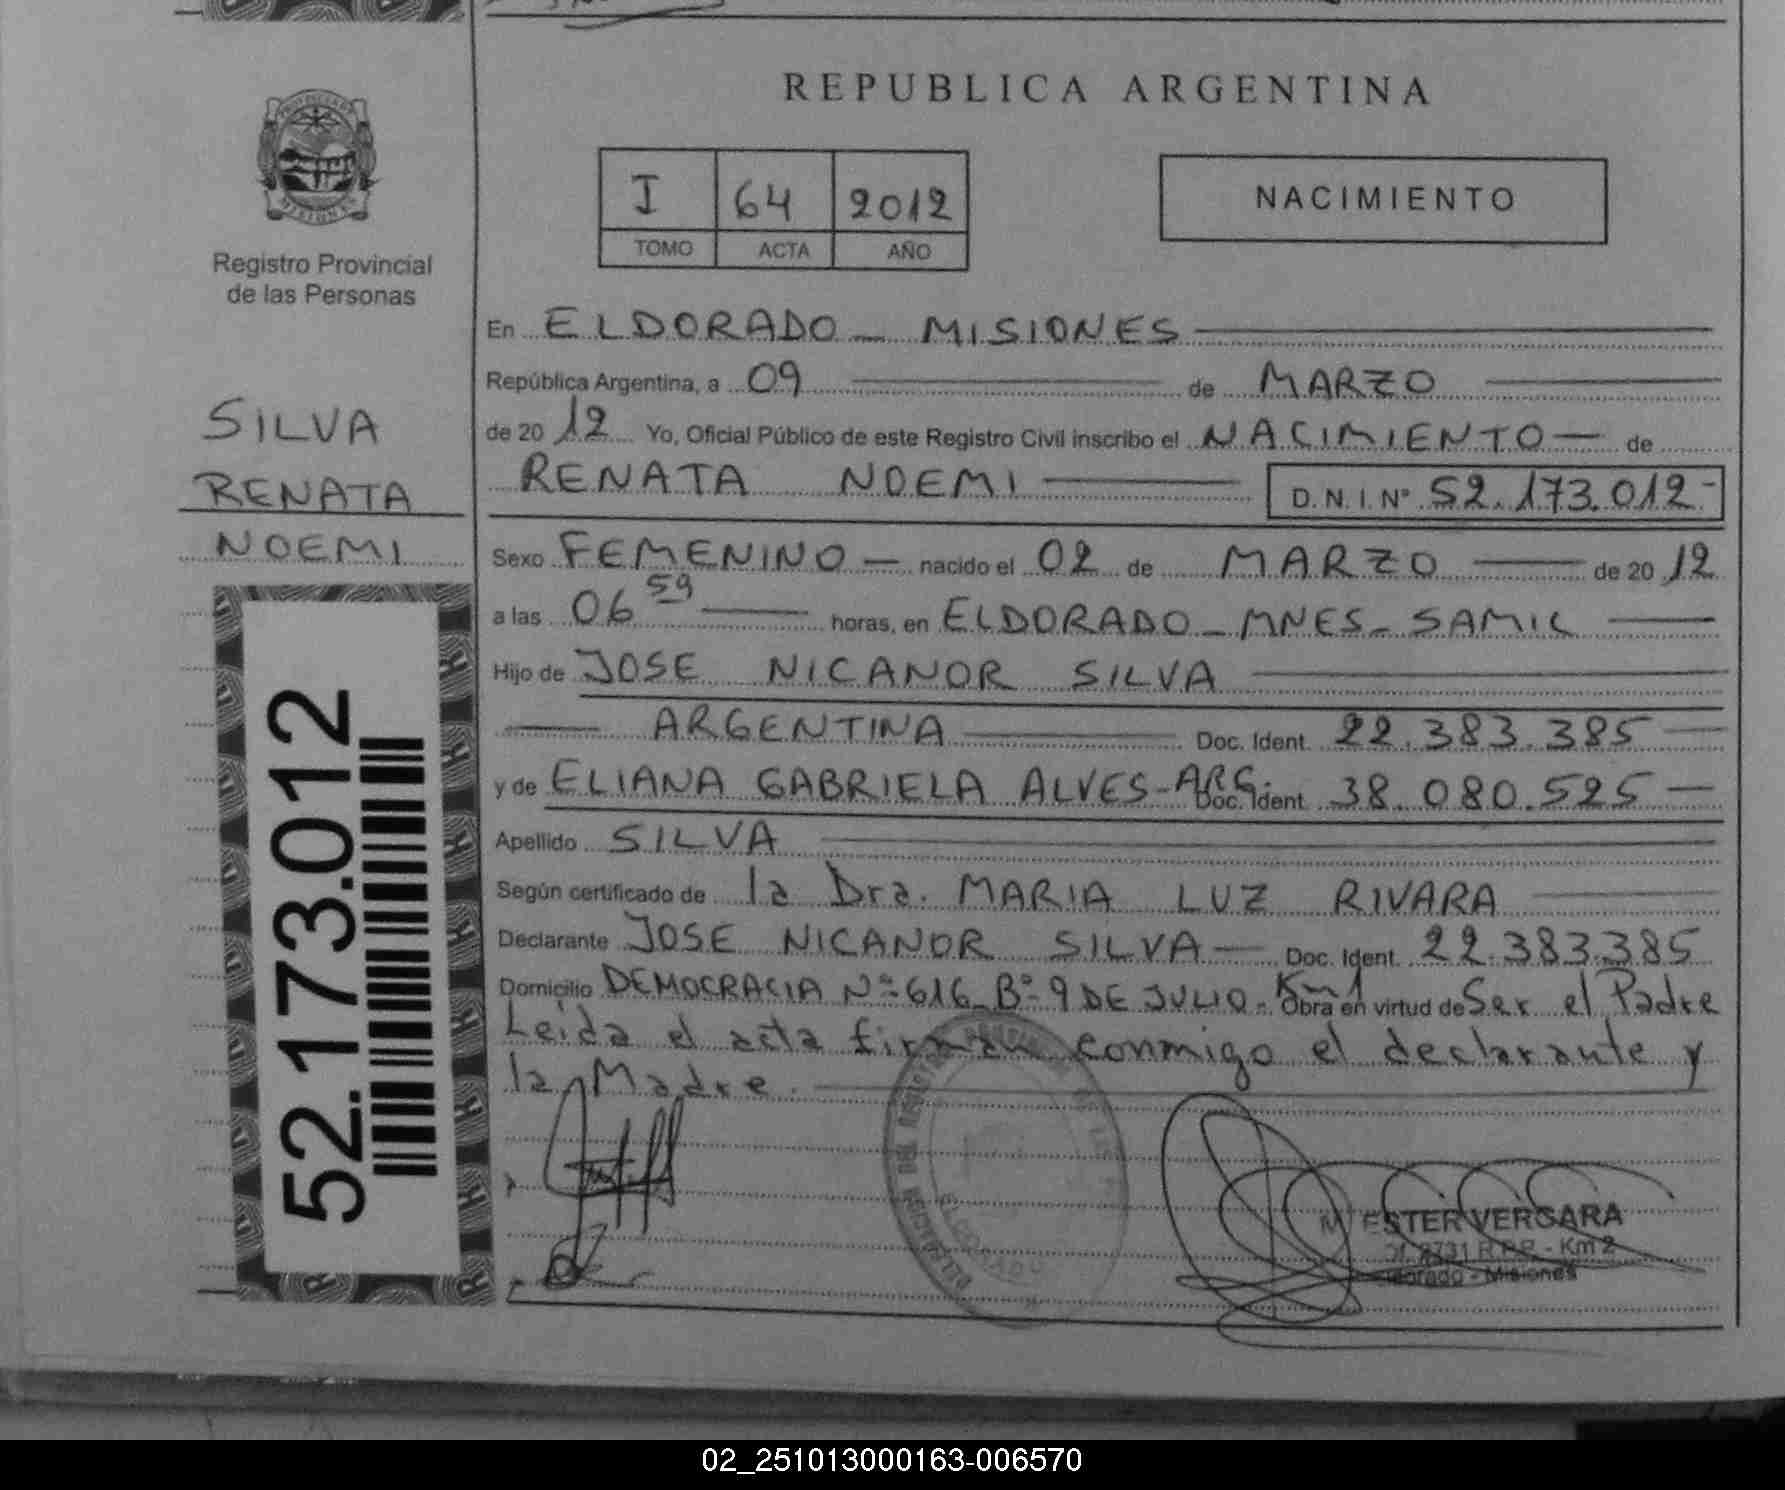 REPUBLICA ARGENTINA
PROVINCIA DE
MISIONES
Registro Provincial
de las Personas
I 64 2012
TOMO ACTA AÑO
NACIMIENTO
En ELDORADO - MISIONES
República Argentina, a 09 de MARZO
de 20 12 Yo, Oficial Público de este Registro Civil inscribo el NACIMIENTO - de
RENATA NOEMI D. N. I. N° 52.173.012-
SILVA
RENATA
NOEMI
52.173.012
Sexo FEMENINO - nacido el 02 de MARZO de 20 12
a las 06 59 horas, en ELDORADO - MNES - SAMIC
Hijo de JOSE NICANOR SILVA
ARGENTINA Doc. Ident. 22.383.385
y de ELIANA GABRIELA ALVES - ARG. Doc. Ident. 38.080.525
Apellido SILVA
Según certificado de la Dra. MARIA LUZ RIVARA
Declarante JOSE NICANOR SILVA - Doc. Ident. 22.383.385
Domicilio DEMOCRACIA N° 616 - B° 9 DE JULIO - Km 1 Obra en virtud de Ser el Padre
Leida el acta firman conmigo el declarante y
la Madre.
ELDORADO
M. ESTER VERGARA
R.P.P. - Km 2
Eldorado - Misiones
02_251013000163-006570